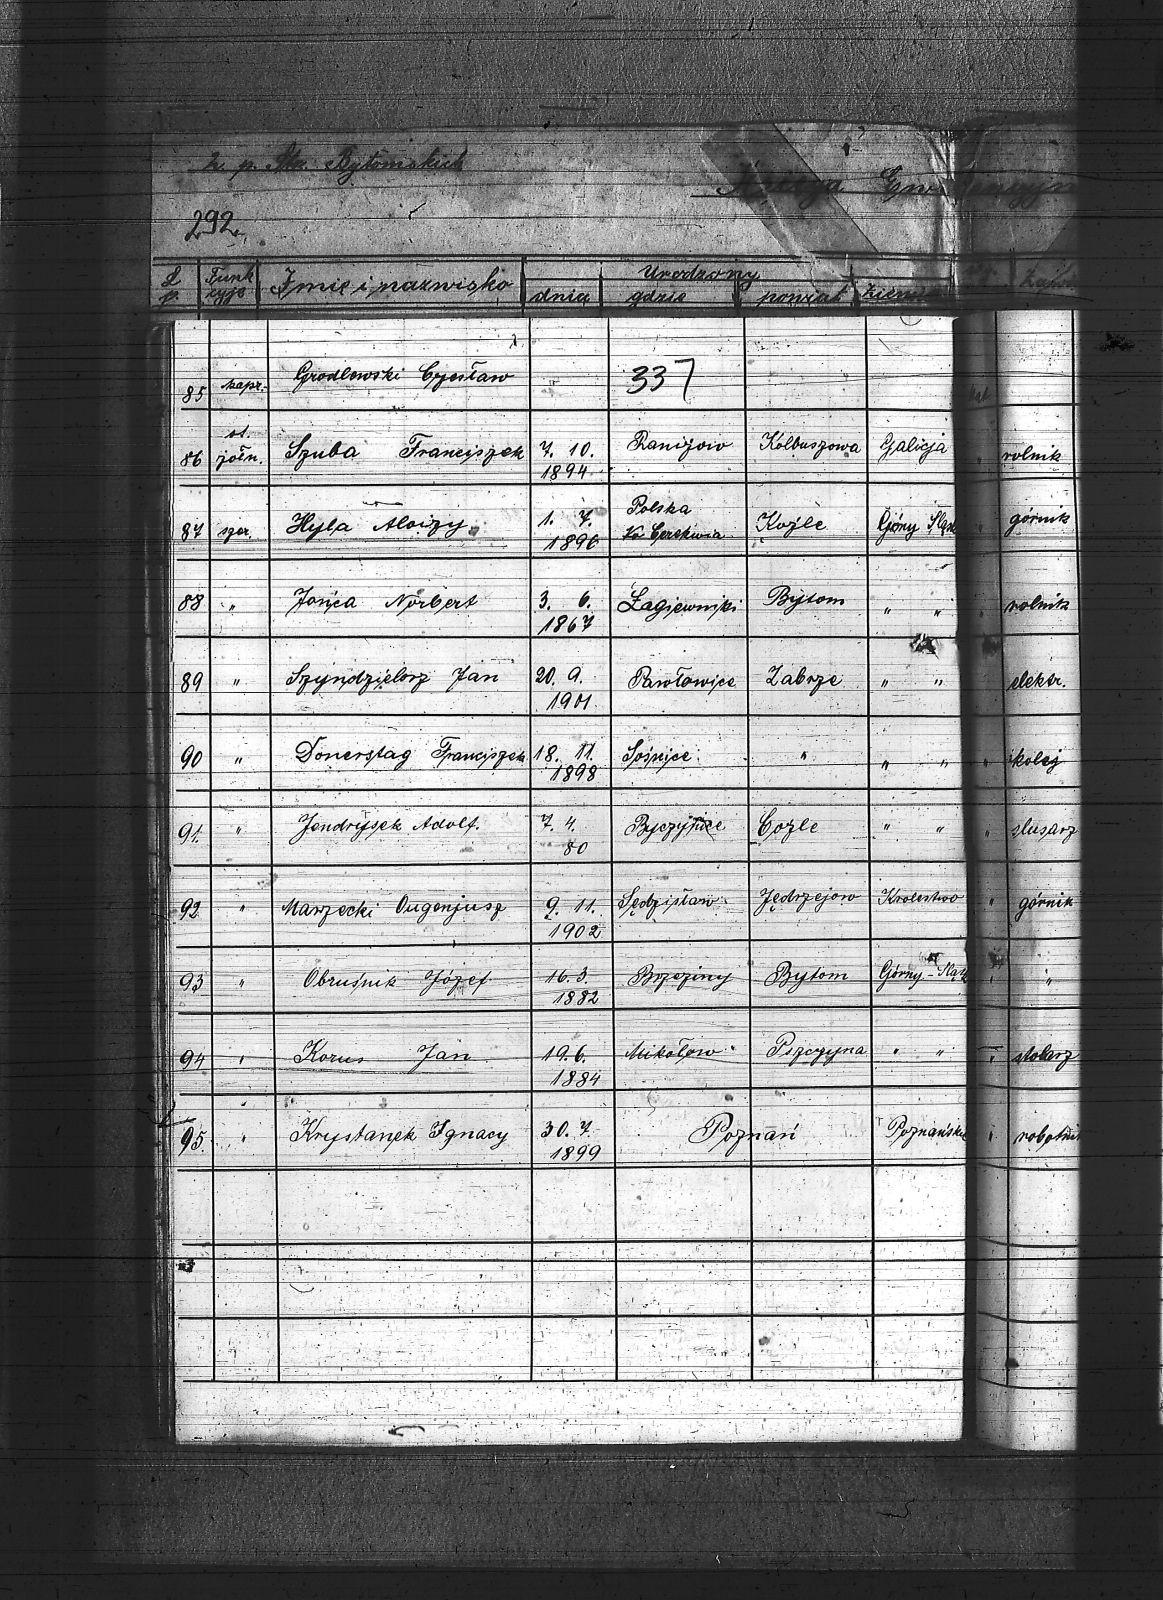 p. Strz. Bytomskich
292
L. p. Funk cyje Imię i nazwisko Urodzony
dnia gdzie powiat ziemia
85 kapr. Grodlewski Czesław 337
86 st. żołn. Szuba Franciszek 7. 10. 1894. Raniżow Kolbuszowa Galicja rolnik
87 szer. Hyla Aloizy 1. 7. 1896 Polska Cerekwia Koźle Górny Śląsk górnik
88 " Jońca Norbert 3. 6. 1867 Łagiewniki Bytom " " rolnik
89 " Szyndzielorz Jan 20. 9. 1901 Pawłowice Zabrze " " elektr.
90 " Donerstag Franciszek 18. 11. 1898 Sośnice " " " kolej
91. " Jendrysek Adolf. 7. 4. 80 Byczynice Cozle " " slusarz
92 " Marzecki Eugenjusz 9. 11. 1902 Sędzisław Jędrzejow Krolestwo " górnik
93 " Obruśnik Józef 16. 3. 1882 Brzeziny Bytom Górny-Śląsk " "
94 " Korus Jan 19. 6. 1884 Mikołow Pszczyna " " " stolarz
95. " Krystanek Ignacy 30. 7. 1899 Poznań Poznańskie " robotnik